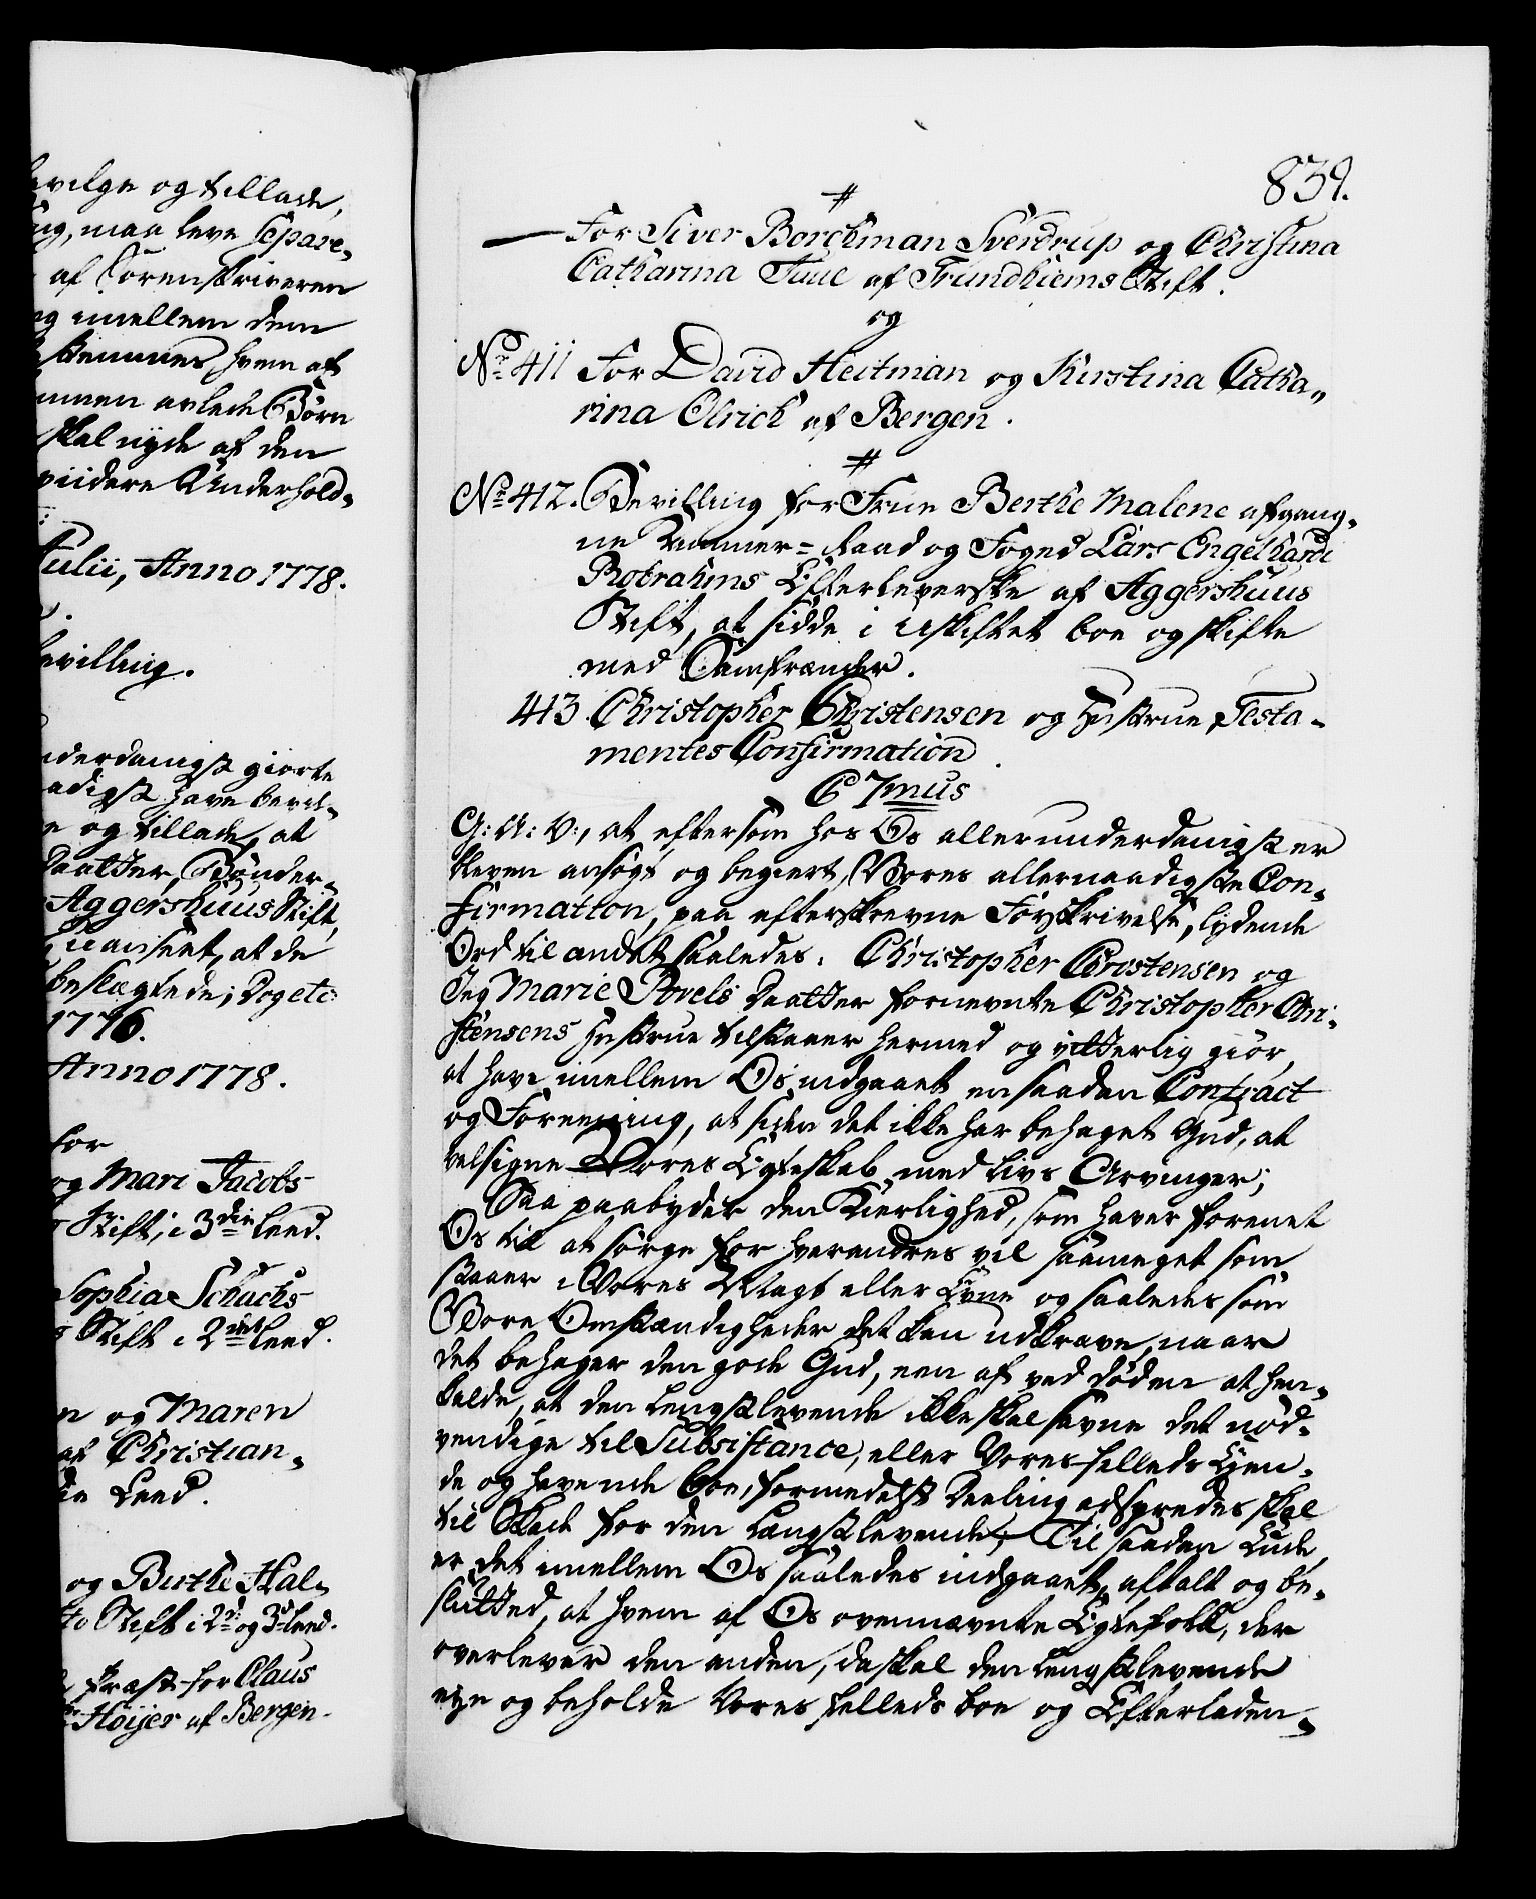 evilge og tillade,
ing, maa leve separe-
af Sorenskriveren
og imellem dem
bestemmes hvem af
ammen avlede Børn
skal nyde af den
viidere Underhold-
Julii, Anno 1778.
evilling.
nderdanigst giorte
aadigst have bevil-
e og tillade, at
Daatter, Bønder-
Aggershuus Stift,
uanseet, at de
beslægtede; Dog etc
1776.
Anno 1778.
for
og Mari Jacobs-
Stift, i 3die Leed.
Sophia Schuchs
Stift i 2det Leed.
n og Maren
af Christian-
die Leed.
og Birthe Hal-
Stift i 2d og 3d Leed.
Præst for Claus
Høijer af Bergen.
839.
#
— For Siver Borchman Sverdrup og Christina
Catharina Juul af Trundhiems Stift.
og
No. 411 For David Heitman og Kirstina Catha-
rina Olrich af Bergen.
#
No. 412. Bevilling for Frue Berthe Malene afgang-
ne Kammer-Raad og Foged Lars Engelhard
Robrahms Efterleverske af Aggershuus
Stift, at sidde i uskiftet boe og skifte
med Samfrænder.
413. Christopher Christensen og Hustrue Testa-
mentes Confirmation.
C 7mus
G: A: V:, at eftersom hos Os allerunderdanigst er
bleven ansøgt og begiert Vores allernaadigste Con-
firmation, paa efterskrevne Forskrivelse, lydende
Ord til andet saaledes. Christopher Christensen og
Jeg Marie Povels Daatter fornevnte Christopher Chri-
stensens Hustrue tilstaaer hermed og vitterlig giør,
at have imellem Os indgaaet en saadan Contract
og Foreening, at siden det ikke har behaget Gud, at
velsigne Vores Egteskab med Livs Arvinger;
Saa paabyder den Kierlighed, som haver forenet
Os til at sørge for hverandres vel saameget som
staaer i Vores Magt eller Evne og saaledes som
Vore Omstændigheder det kan udkræve, naar
det behager den gode Gud, een af ved Døden at hen-
kalde, at den Lengstlevende ikke skal savne det nød-
vendige til Subsistance, eller Vores felleds Eien-
de og havende boe, formedelst Deeling adspredes skal
til Skade for den Længstlevende; Til saadan Ende
er det imellem Os saaledes indgaaet, aftalt og be-
sluttet, at hvem af Os ovennævnte Egtefolk, der
overlever den anden, da skal den Lengstlevende
eye og beholde Vores felleds boe og Efterladen-